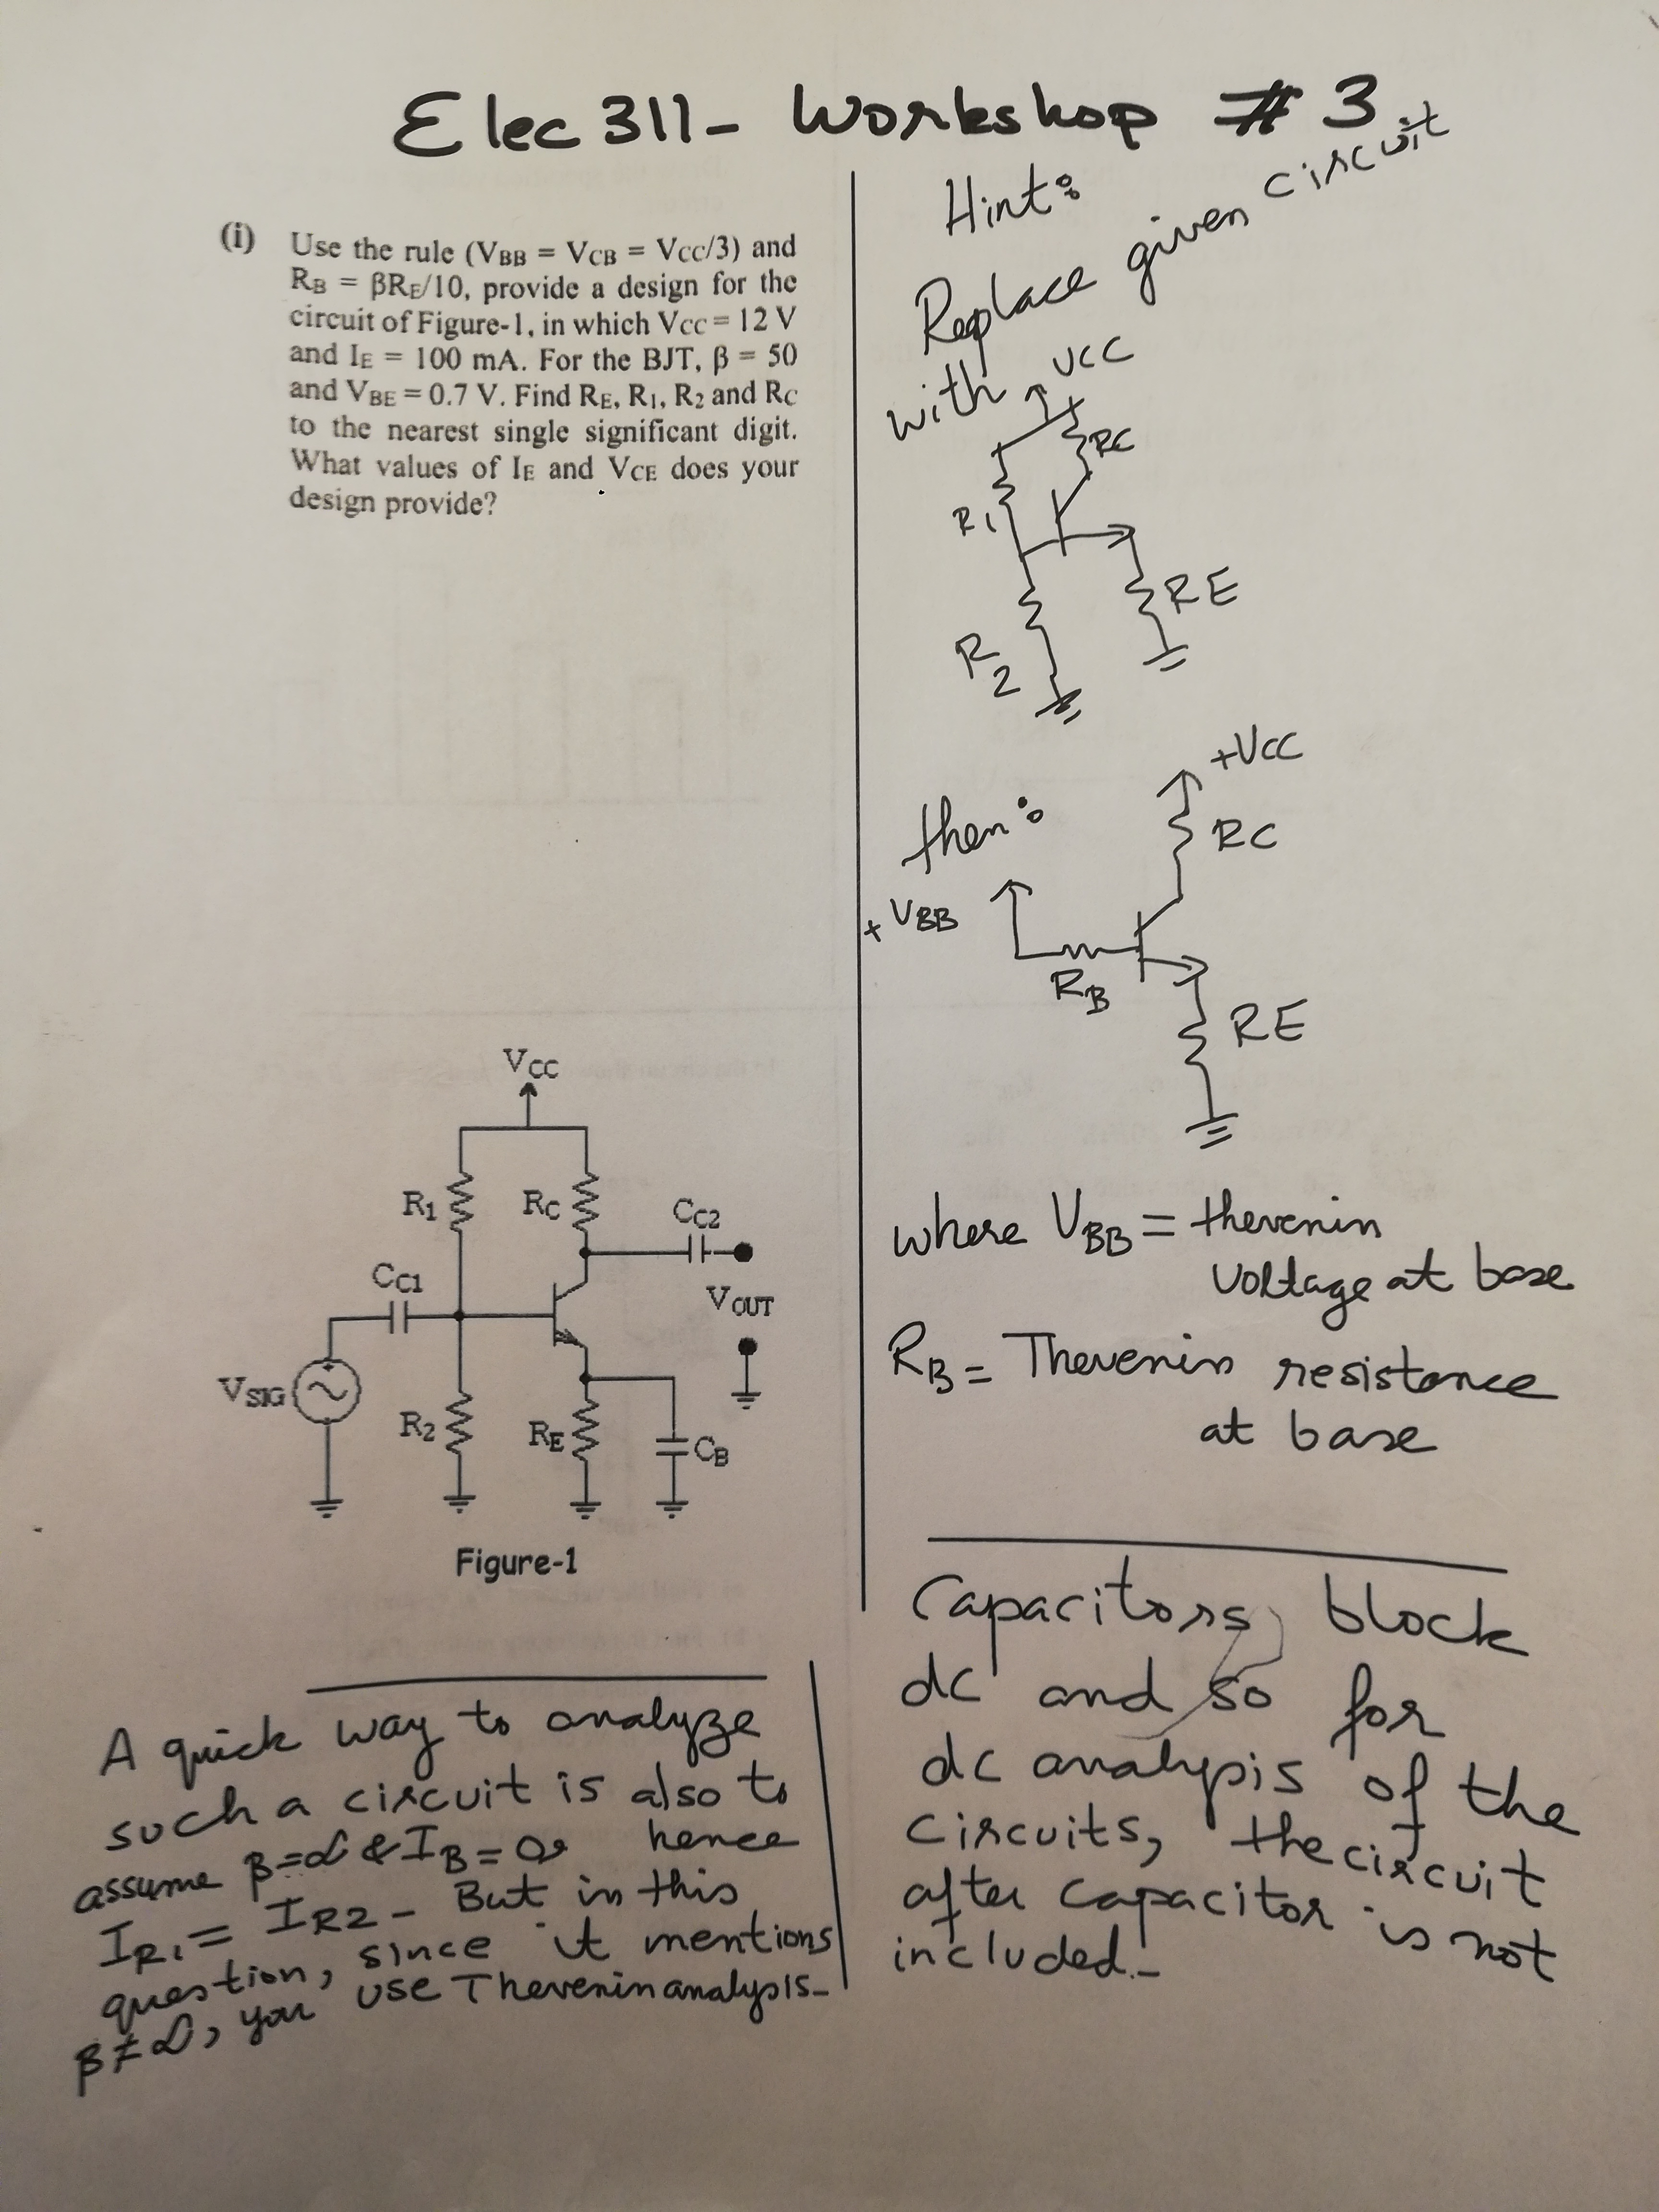 Elec 311- Workshop # 3
(i) Use the rule (VBB = VCB = VCC/3) and
RB = βRE/10, provide a design for the
circuit of Figure-1, in which VCC = 12 V
and IE = 100 mA. For the BJT, β = 50
and VBE = 0.7 V. Find RE, R1, R2 and RC
to the nearest single significant digit.
What values of IE and VCE does your
design provide?
VCC
R1
RC
CC2
CC1
VOUT
VSIG
R2
RE
CB
Figure-1
A quick way to analyze
such a circuit is also to
assume β=∞ & IB=0, hence
IR1 = IR2- But in this
question, since it mentions
β≠∞, you use Thevenin analysis-
Hint:
Replace given circuit
with
VCC
RC
R1
RE
R2
then:
+VCC
RC
+VBB
RB
RE
where VBB = thevenin
voltage at base
RB = Thevenin resistance
at base
Capacitors block
dc and so for
dc analysis of the
circuits, the circuit
after capacitor is not
included.-